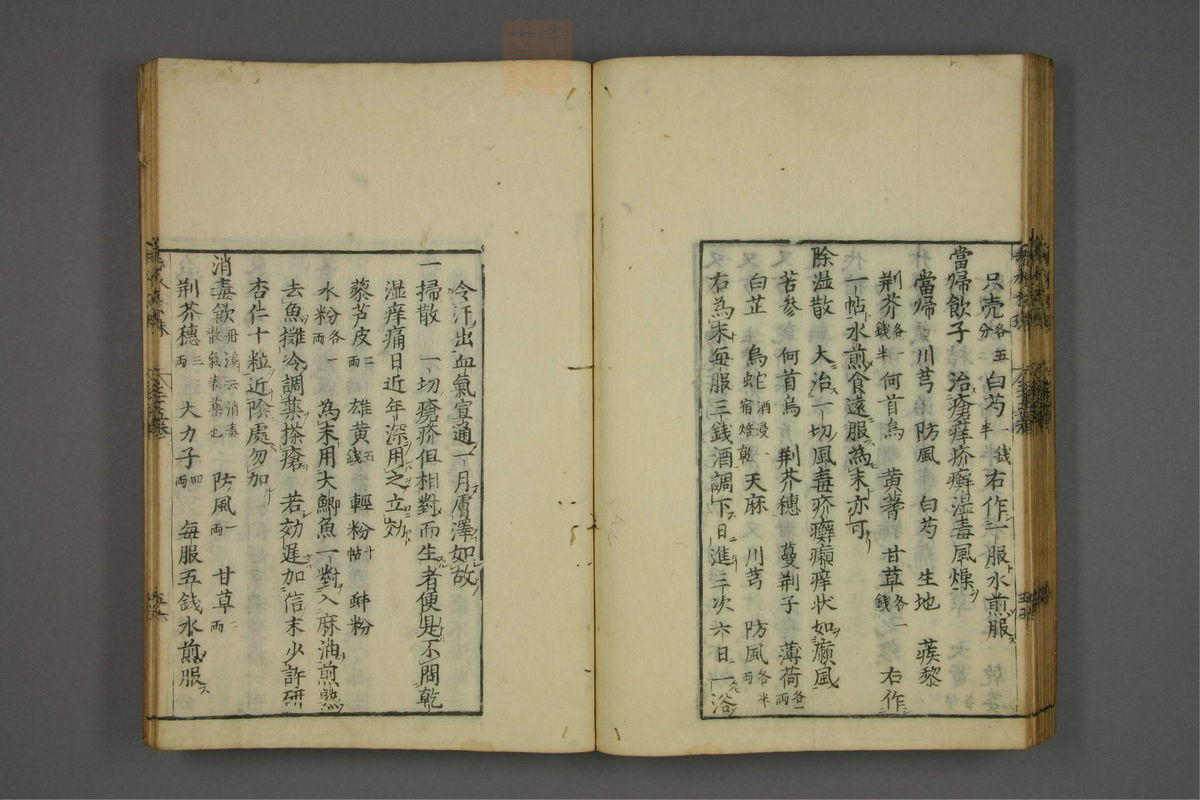 只壳各五分 白芍一錢半 右作一服水煎服
當帰飲子 治瘡痒疥癬湿毒風燥
當帰 川芎 防風 白芍 生地 蒺藜
荆芥各一錢半 何首烏 黄蓍 甘草各一錢 右作
一帖水煎食遠服為末亦可
除湿散 大治一切風毒疥癬癩痒状如癩風
苦参 何首烏 荆芥穗 蔓荆子 薄荷各一両
白芷 烏蛇酒浸一宿焙乾 天麻 川芎 防風各半両
右為末毎服三錢酒調下日進三次六日一浴
令汗出血氣宣通一月膚澤如故
一掃散 一切瘡疥但相對而生者便是不問乾
湿痒痛日近年深用之立効
藜芦皮二両 雄黄五錢 輕粉十帖 蚌粉
水粉各一両 為末用大鯽魚一對入麻油煎熟
去魚攤冷調藥搽瘡 若効遲加信末少許研
杏仁十粒近陰處勿加
消毒飲丹溪云消毒散氣表藥也 防風一両 甘草二両
荆芥穗三両 大力子四両 毎服五錢水煎服